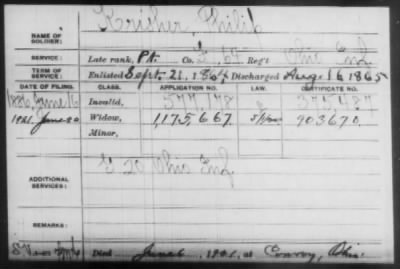 NAME OF SOLDIER: Krisher, Philip
SERVICE: Late rank, Pt. Co. Reg't Ohio Inf
TERM OF SERVICE: Enlisted Sept. 21, 1864 Discharged Aug 16 1865
DATE OF FILING. CLASS. APPLICATION NO. LAW. CERTIFICATE NO.
June 16 Invalid, 577,178 375,487
1921. June 20 Widow, 1,175,667 903670
Minor,
ADDITIONAL SERVICES: 20 Ohio Inf
REMARKS:
Died June 6, 1921, at Convoy, Ohio